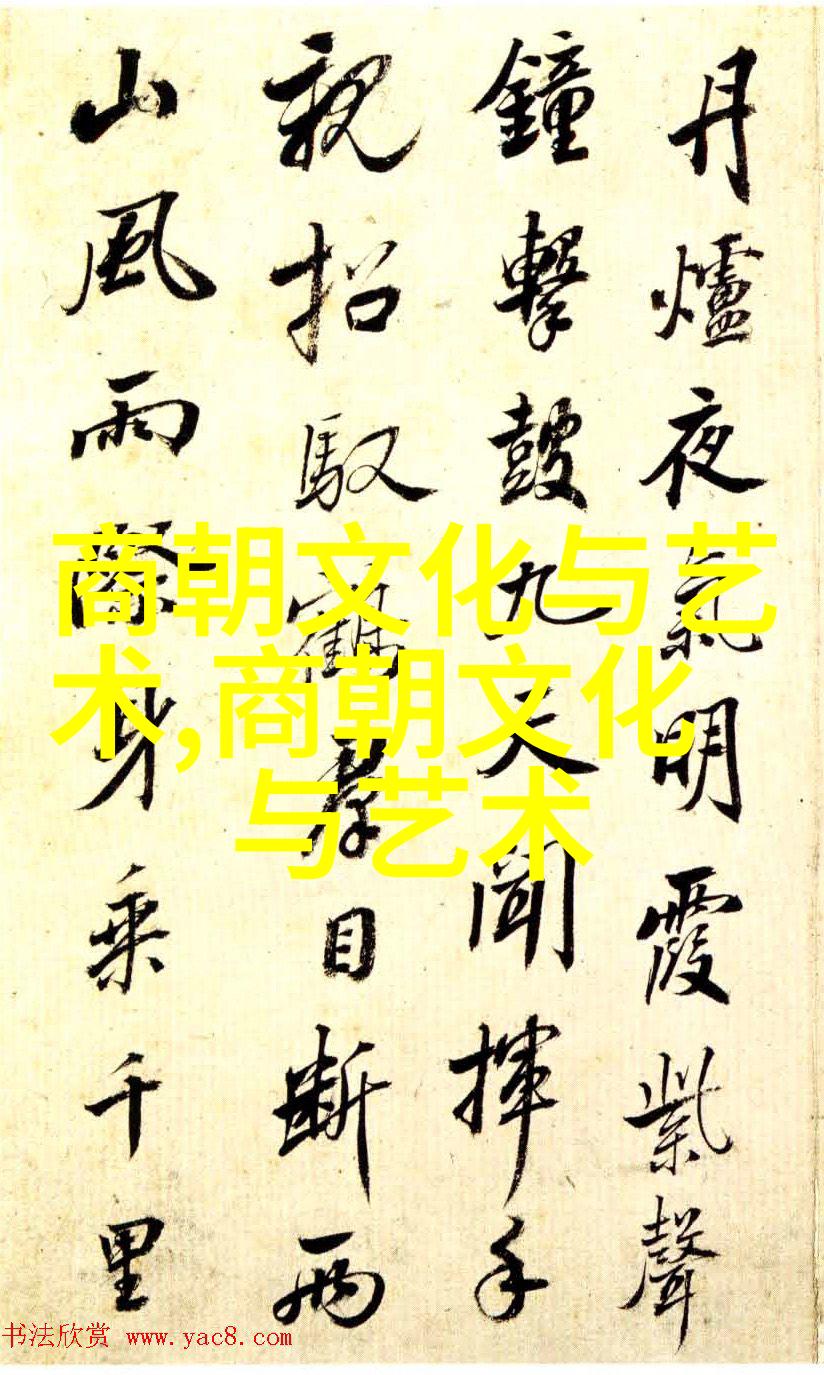 丹爐夜氣明霞紫聲
鐘擊鼓九天聞揮手
親招馭鶴羣目斷兩
山風雨際身乘千里
商朝文化与艺
术,商朝文化
与艺术
书法欣赏 www.yac8.com